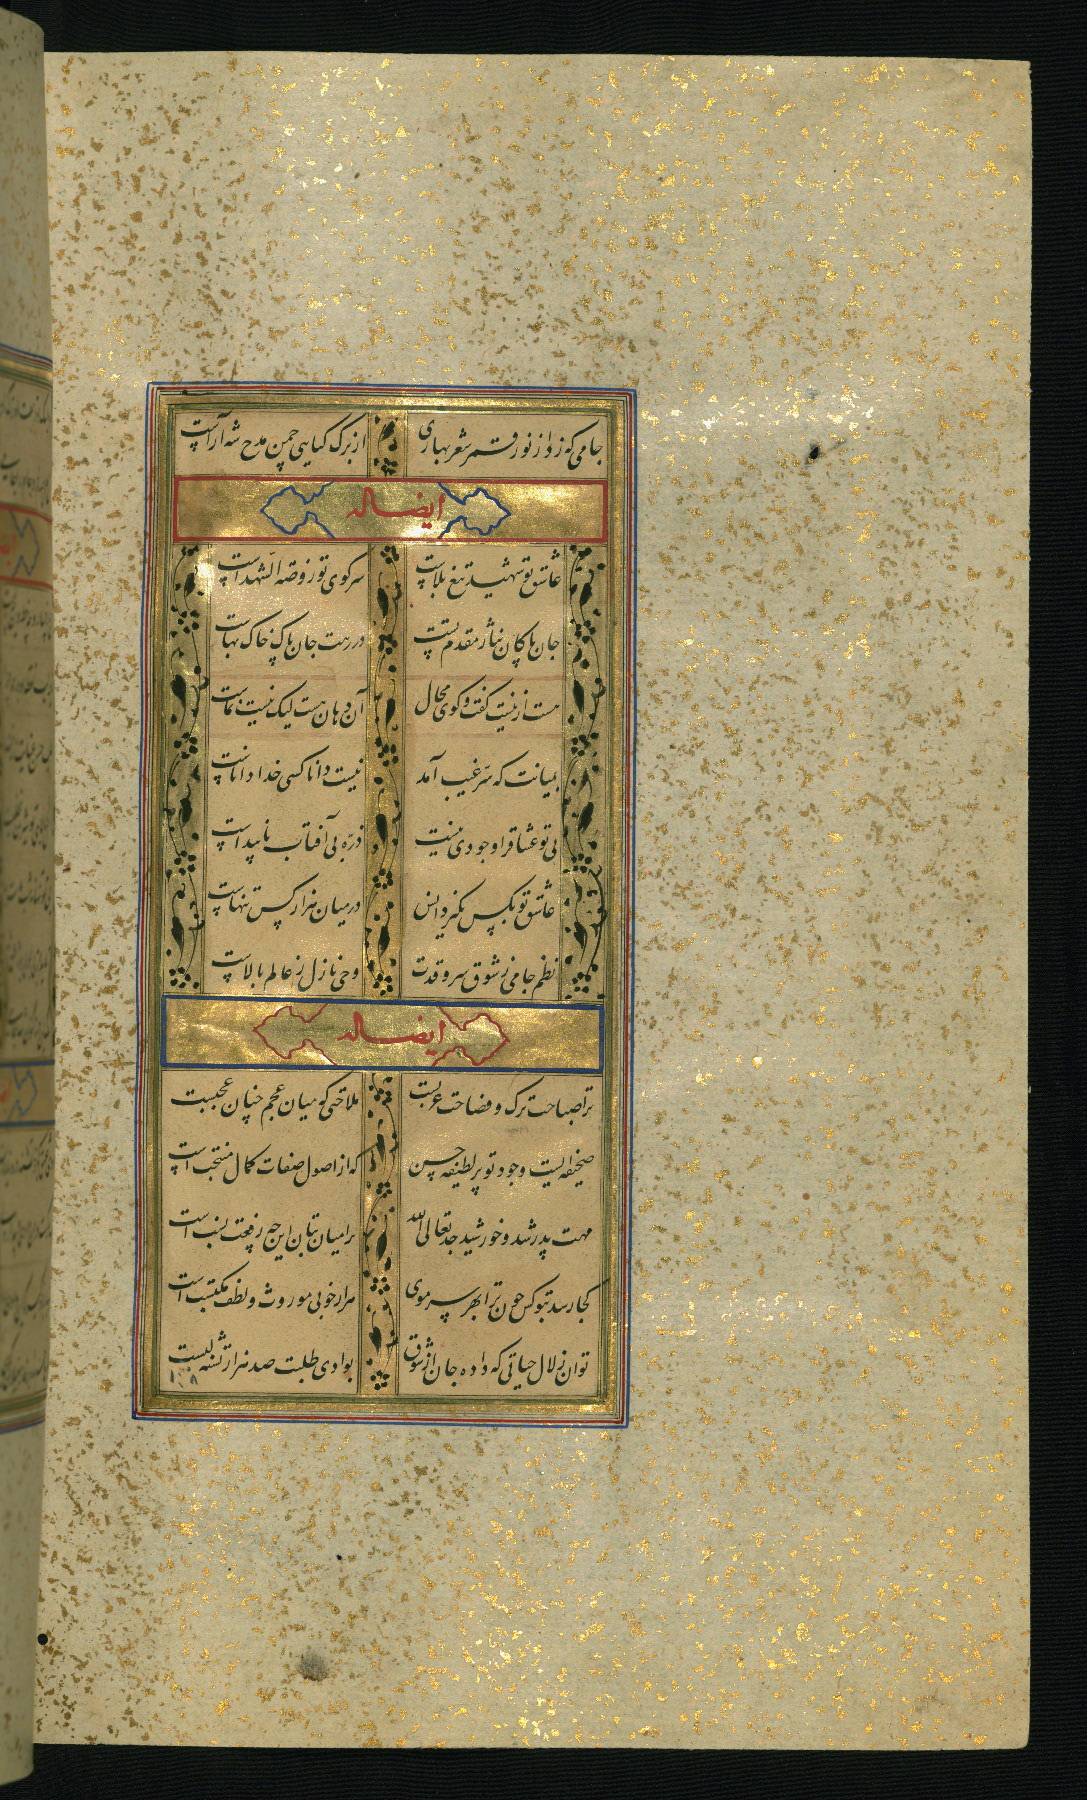 جامی که زد از نور قمر شعر بهاری از برگ کیایی چمن مدح شه آراست
ایضا له
عاشق تو شهید تیغ بلاست سر کوی تو روضه الشهداست
جان پاکان نثار مقدم تست در رهت جان پاک خاک بهاست
هست از نیست گفت و کوی محال آن دهان هست لیک نیست نماست
بمیانت که سر غیب آمد نیست دانا کسی خدا داناست
بی تو عشاق را وجودی نیست ذره بی آفتاب ناپیداست
عاشق تو بکس نگیرد انس در میان هزار کس تنهاست
نظم جامی ز شوق سرو قدت وحی نازل ز عالم بالاست
ایضا له
ترا صباحت ترک و فصاحت عربست ملاحتی که میان عجم چنان عجبست
صحیفه ایست وجود تو پر لطیفه حسن که از اصول صفات کمال منتخب است
مهت پدر شد و خورشید جد تعالی الله ترا میان بتان این چه رفعت نسب است
کجا رسد بتو کس چون ترا بهر سر موی هزار خوبی موروث و لطف مکتسب است
توان زلال حیاتی که داده جان از شوق بوادی طلبت صد هزار تشنه لبست